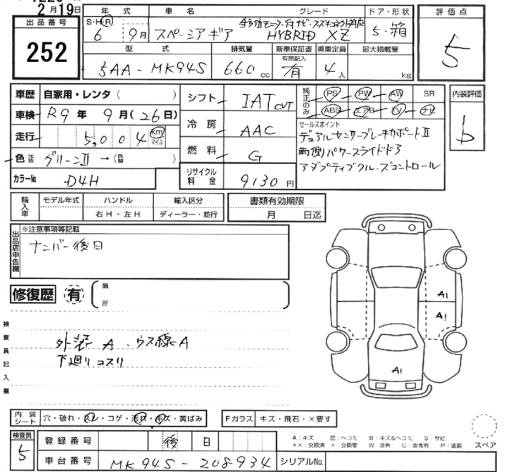 2月19日
出品番号
252
年式 車名 グレード ドア・形状
S・H・R 6年 9月 スペーシアギア HYBRID XZ 5・箱
型式 排気量 新車保証書 乗車定員 最大積載量
5AA-MK94S 660cc 有無記入 有 4人 kg
評価点
5
車歴 自家用・レンタ(
車検 R9年 9月(26日)
走行 5,004 Km マイル
色 グリーンII → 色替(
カラーNo D4H
シフト IAT CVT
冷房 AAC
燃料 G
リサイクル料金 9130円
純正のみ PS PW AW SR
ABS
セールスポイント
デュアルセンサーブレーキサポートII
両側パワースライドドア
アダプティブクルーズコントロール
内装評価
b
輸入車 モデル年式 ハンドル 輸入区分
右H・左H ディーラー・並行
書類有効期限
月 日迄
出品店申告欄
※注意事項等記載
ナンバー後日
修復歴 有 箇所
検査員記入欄
外装 A ウス線A
下廻りコスリ
A1
A1
A1
内装シート 穴・破れ・コゲ・黄ばみ
Fガラス キズ・飛石・×要す
検査員
5
登録番号 後日
車台番号 MK94S-208934
シリアルNo.
A:キズ 凹:ヘコミ B:キズ&ヘコミ S:サビ
スペア